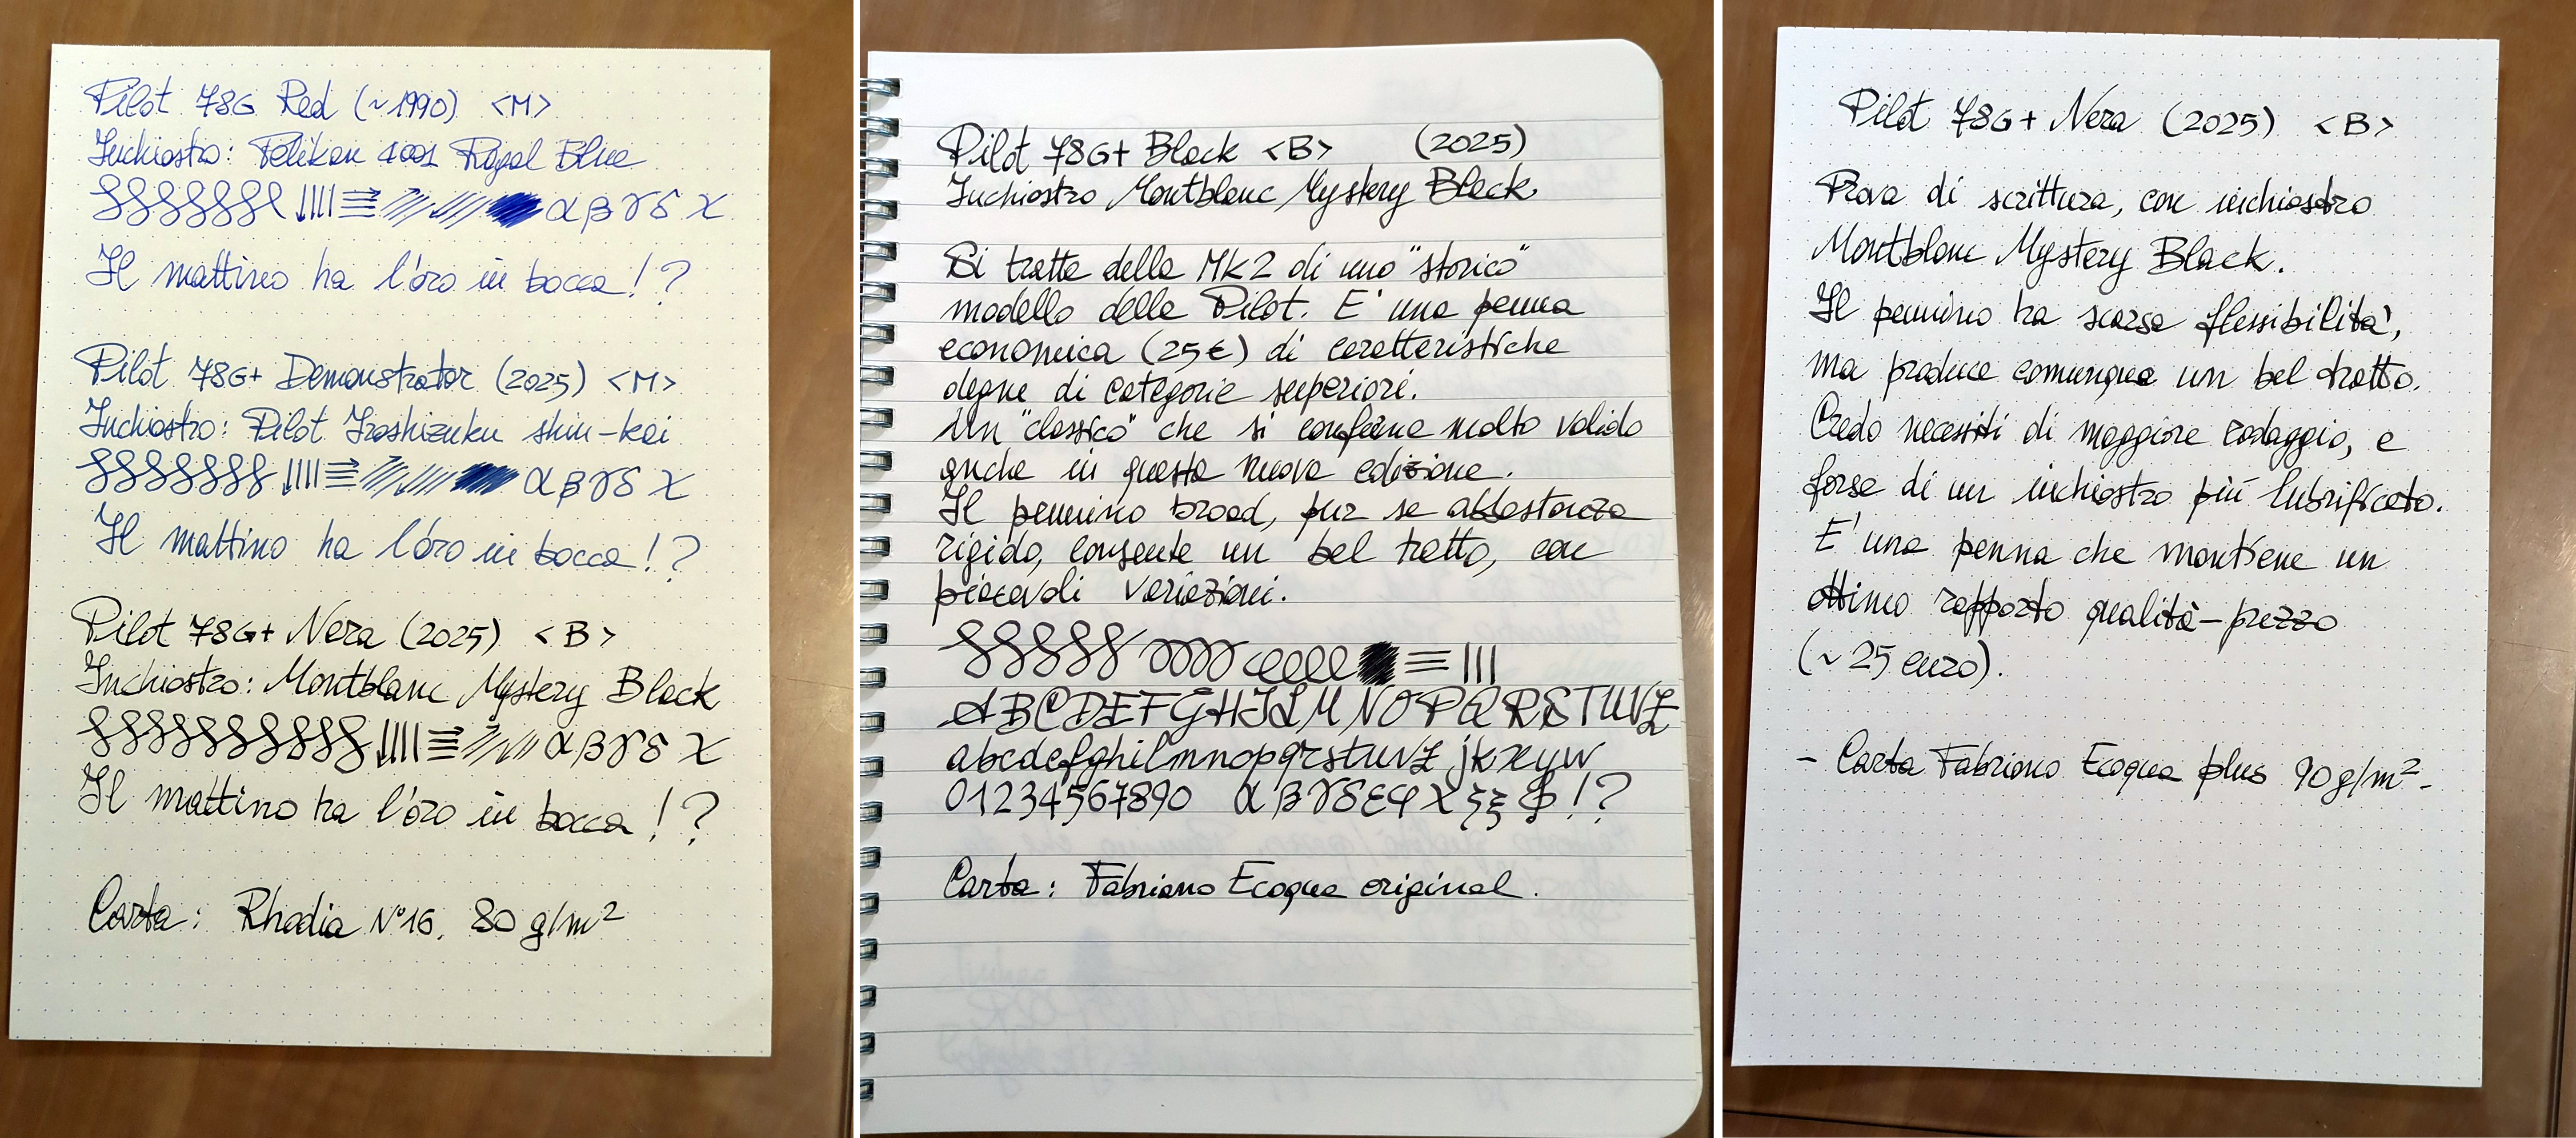 Pilot 78G Red (~1990) <M>
Inchiostro: Pelikan 4001 Royal Blue
α β γ δ χ
Il mattino ha l'oro in bocca!?
Pilot 78G+ Demonstrator (2025) <M>
Inchiostro: Pilot Iroshizuku shin-kai
α β γ δ χ
Il mattino ha l'oro in bocca!?
Pilot 78G+ Nera (2025) <B>
Inchiostro: Montblanc Mystery Black
α β γ δ χ
Il mattino ha l'oro in bocca!?
Carta: Rhodia N°16, 80 g/m²
Pilot 78G+ Black <B> (2025)
Inchiostro Montblanc Mystery Black
Si tratta della MK2 di uno "storico"
modello della Pilot. E' una penna
economica (25€) di caratteristiche
degne di categorie superiori.
Un "classico" che si conferma molto valido
anche in questa nuova edizione.
Il pennino broad, pur se abbastanza
rigido, consente un bel tratto, con
piacevoli variazioni.
ABCDEFGHILMNOPQRSTUVZ
abcdefghilmnopqrstuvz jkxyw
01234567890 α β γ δ ε φ χ ξ ξ !?
Carta: Fabriano Ecoqua original.
Pilot 78G+ Nera (2025) <B>
Prova di scrittura, con inchiostro
Montblanc Mystery Black.
Il pennino ha scarsa flessibilità,
ma produce comunque un bel tratto.
Credo necessiti di maggiore rodaggio, e
forse di un inchiostro più lubrificato.
E' una penna che mantiene un
ottimo rapporto qualità-prezzo
(~25 euro).
- Carta Fabriano Ecoqua plus 90g/m² -